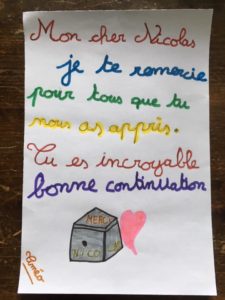 Mon cher Nicolas
je te remercie
pour tous que tu
nous as appris.
Tu es incroyable
bonne continuation
MERCI
NICO